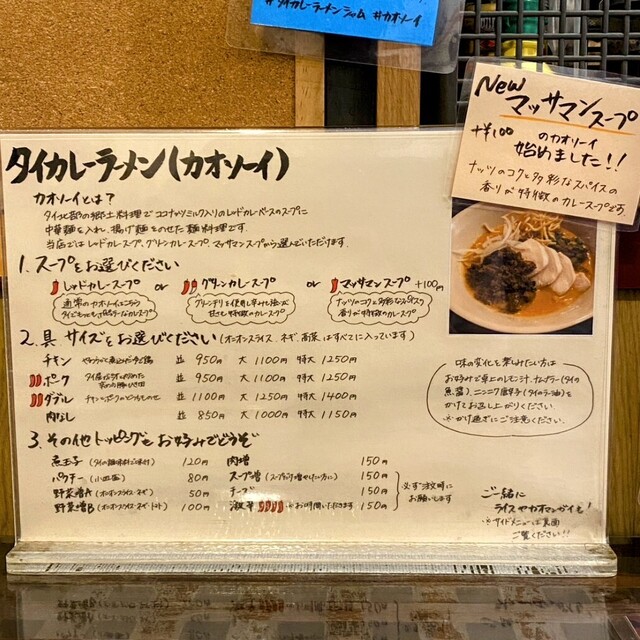 #タイカレーラーメンシャム #カオソーイ
New
マッサマンスープ
+¥100 のカオソーイ
始めました!!
ナッツのコクと多彩なスパイスの
香りが特徴のカレースープです。
タイカレーラーメン(カオソーイ)
カオソーイとは?
タイ北部の郷土料理でココナッツミルク入りのレッドカレーベースのスープに
中華麺を入れ、揚げ麺をのせた麺料理です。
当店ではレッドカレースープ、グリーンカレースープ、マッサマンスープから選んでいただけます。
1. スープをお選びください
レッドカレースープ or グリーンカレースープ or マッサマンスープ +100円
通常のカオソーイはコチラ
タイでもっともポピュラーなカレースープ
グリーンチリを使用し辛みも強いが
甘さも特徴のカレースープ
ナッツのコクと多彩なスパイス
香りが特徴のカレースープ
2. 具 サイズをお選びください(オニオンスライス、ネギ、高菜はすべてに入っています)
チキン やわらかく煮込んだ 並 950円 大 1100円 特大 1250円
ポーク 並 950円 大 1100円 特大 1250円
ダブル チキンとポークのどちらものせ 並 1100円 大 1250円 特大 1400円
肉なし 並 850円 大 1000円 特大 1150円
味の変化を楽しみたい方は
お好みで卓上のレモン汁、ナンプラー(タイの
魚醤)、ニンニク唐辛子(タイのラー油)を
かけてお召し上がりください。
※かけ過ぎにご注意ください。
3. その他トッピングをお好みでどうぞ
煮玉子 120円 肉増 150円
パクチー(小皿盛) 80円 スープ増(スープだけ増やしたい方に) 150円
野菜増A(オニオンスライス・ネギ) 50円 チーズ 150円
野菜増B(オニオンスライス・ネギ・トマト) 100円 激辛 ※お時間いただきます 150円
必ずご注文時に
お願いします
ご一緒に
ライスやカオマンガイを!
※サイドメニューは裏面
ご覧ください!!